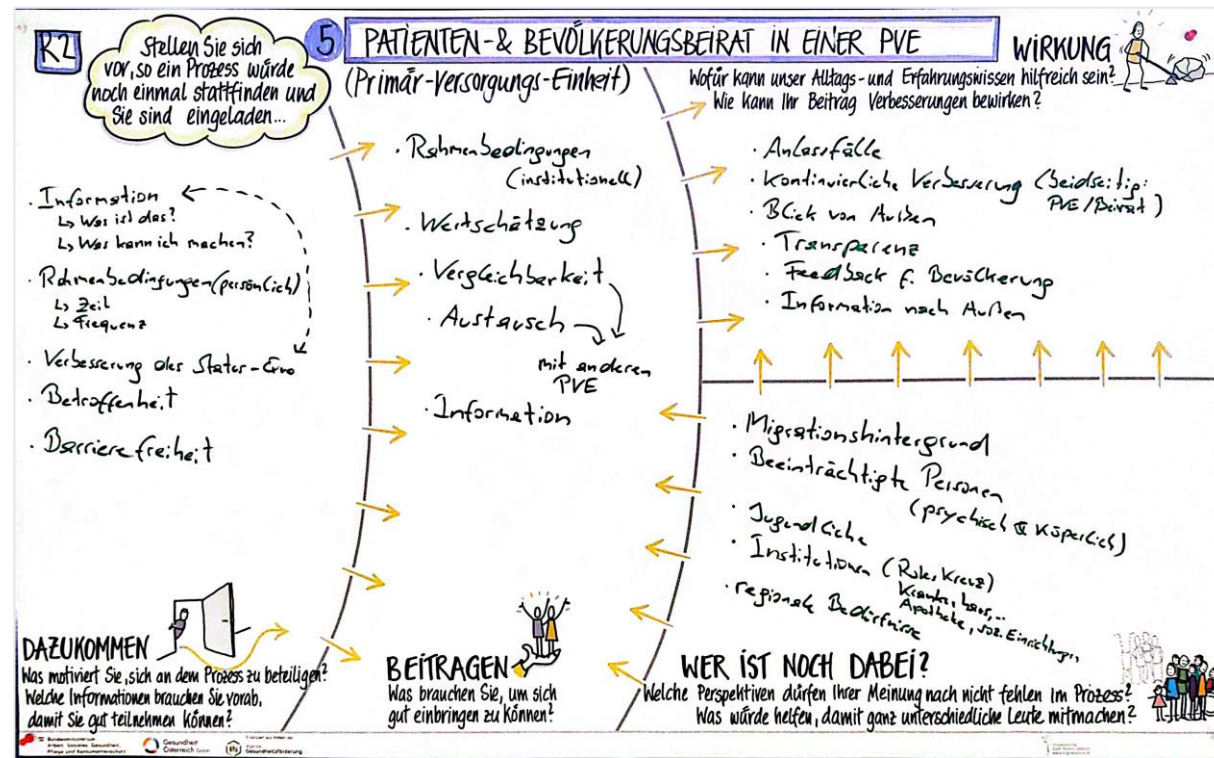 R2
Stellen Sie sich
vor, so ein Prozess würde
noch einmal stattfinden und
Sie sind eingeladen...
5 PATIENTEN-& BEVÖLKERUNGSBEIRAT IN EINER PVE
(Primär-Versorgungs-Einheit)
WIRKUNG
Wofür kann unser Alltags- und Erfahrungswissen hilfreich sein?
Wie kann Ihr Beitrag Verbesserungen bewirken?
· Information
↳ Was ist das?
↳ Was kann ich machen?
· Rahmenbedingungen (persönlich)
↳ Zeit
↳ Frequenz
· Verbesserung des Status-Quo
· Betroffenheit
· Barrierefreiheit
· Rahmenbedingungen
(institutionell)
· Wertschätzung
· Vergleichbarkeit
· Austausch
mit anderen
PVE
· Information
· Anlassfälle
· Kontinuierliche Verbesserung (beidseitig:
PVE/Beirat)
· Blick von Außen
· Transparenz
· Feedback f. Bevölkerung
· Information nach Außen
· Migrationshintergrund
· Beeinträchtigte Personen
(psychisch & Körperlich)
· Jugendliche
· Institutionen (Rotes Kreuz)
Krankenhaus,...
Apotheke, soz. Einrichtungen
· regionale Bedürfnisse
DAZUKOMMEN
Was motiviert Sie, sich an dem Prozess zu beteiligen?
Welche Informationen brauchen Sie vorab,
damit Sie gut teilnehmen können?
BEITRAGEN
Was brauchen Sie, um sich
gut einbringen zu können?
WER IST NOCH DABEI?
Welche Perspektiven dürfen Ihrer Meinung nach nicht fehlen im Prozess?
Was würde helfen, damit ganz unterschiedliche Leute mitmachen?
Bundesministerium
Arbeit, Soziales, Gesundheit,
Pflege und Konsumentenschutz
Gesundheit
Österreich GmbH
Gesundheitsförderung